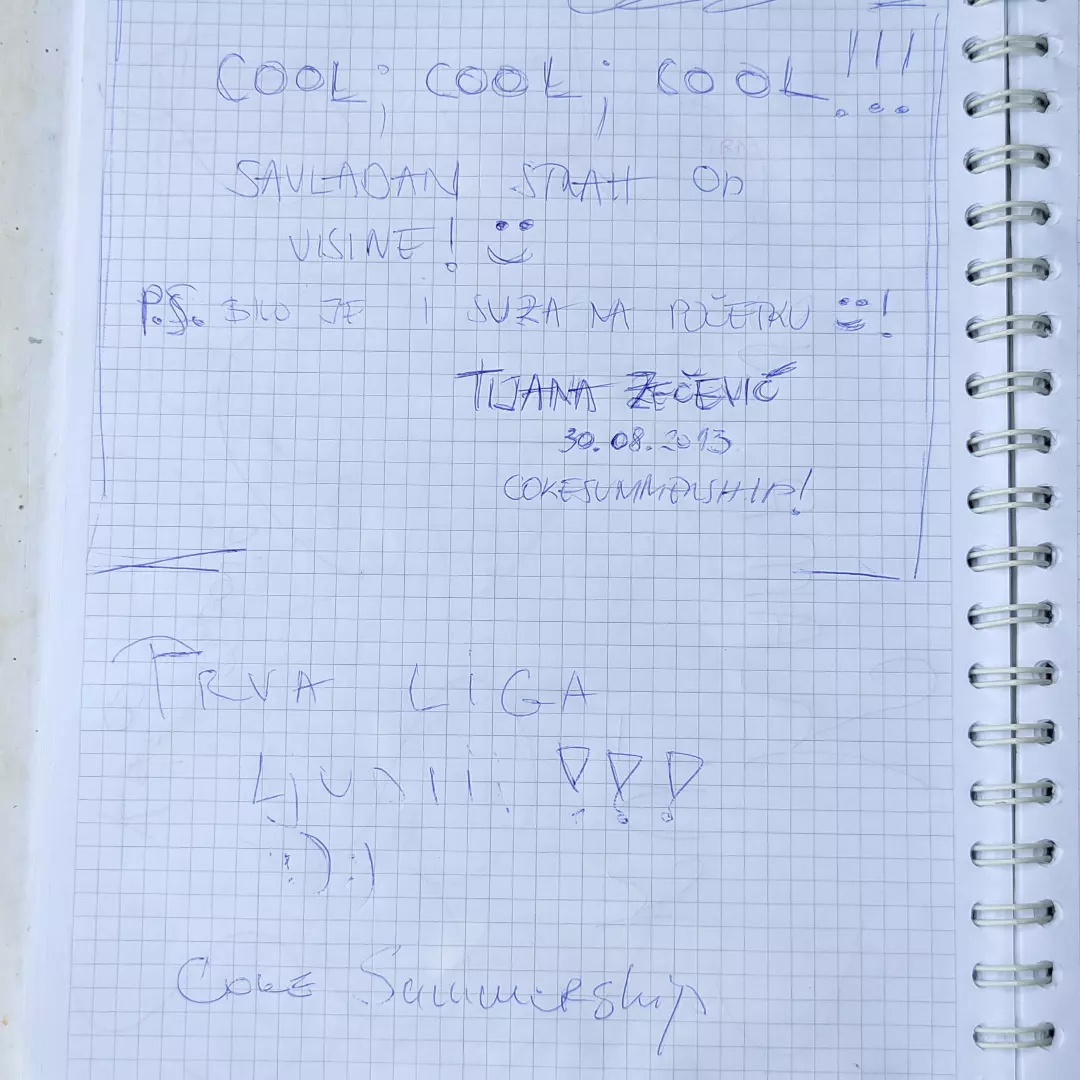 COOL; COOL; COOL!!!
SAVLADAN STRAH OD
VISINE! :)
P.S. BILO JE I SUZA NA POČETKU :)!
TIJANA ZEČEVIĆ
30.08.2013
COKESUMMERSHIP!
PRVA LIGA
LJUDIII!!!
:) :)
COKE Summership